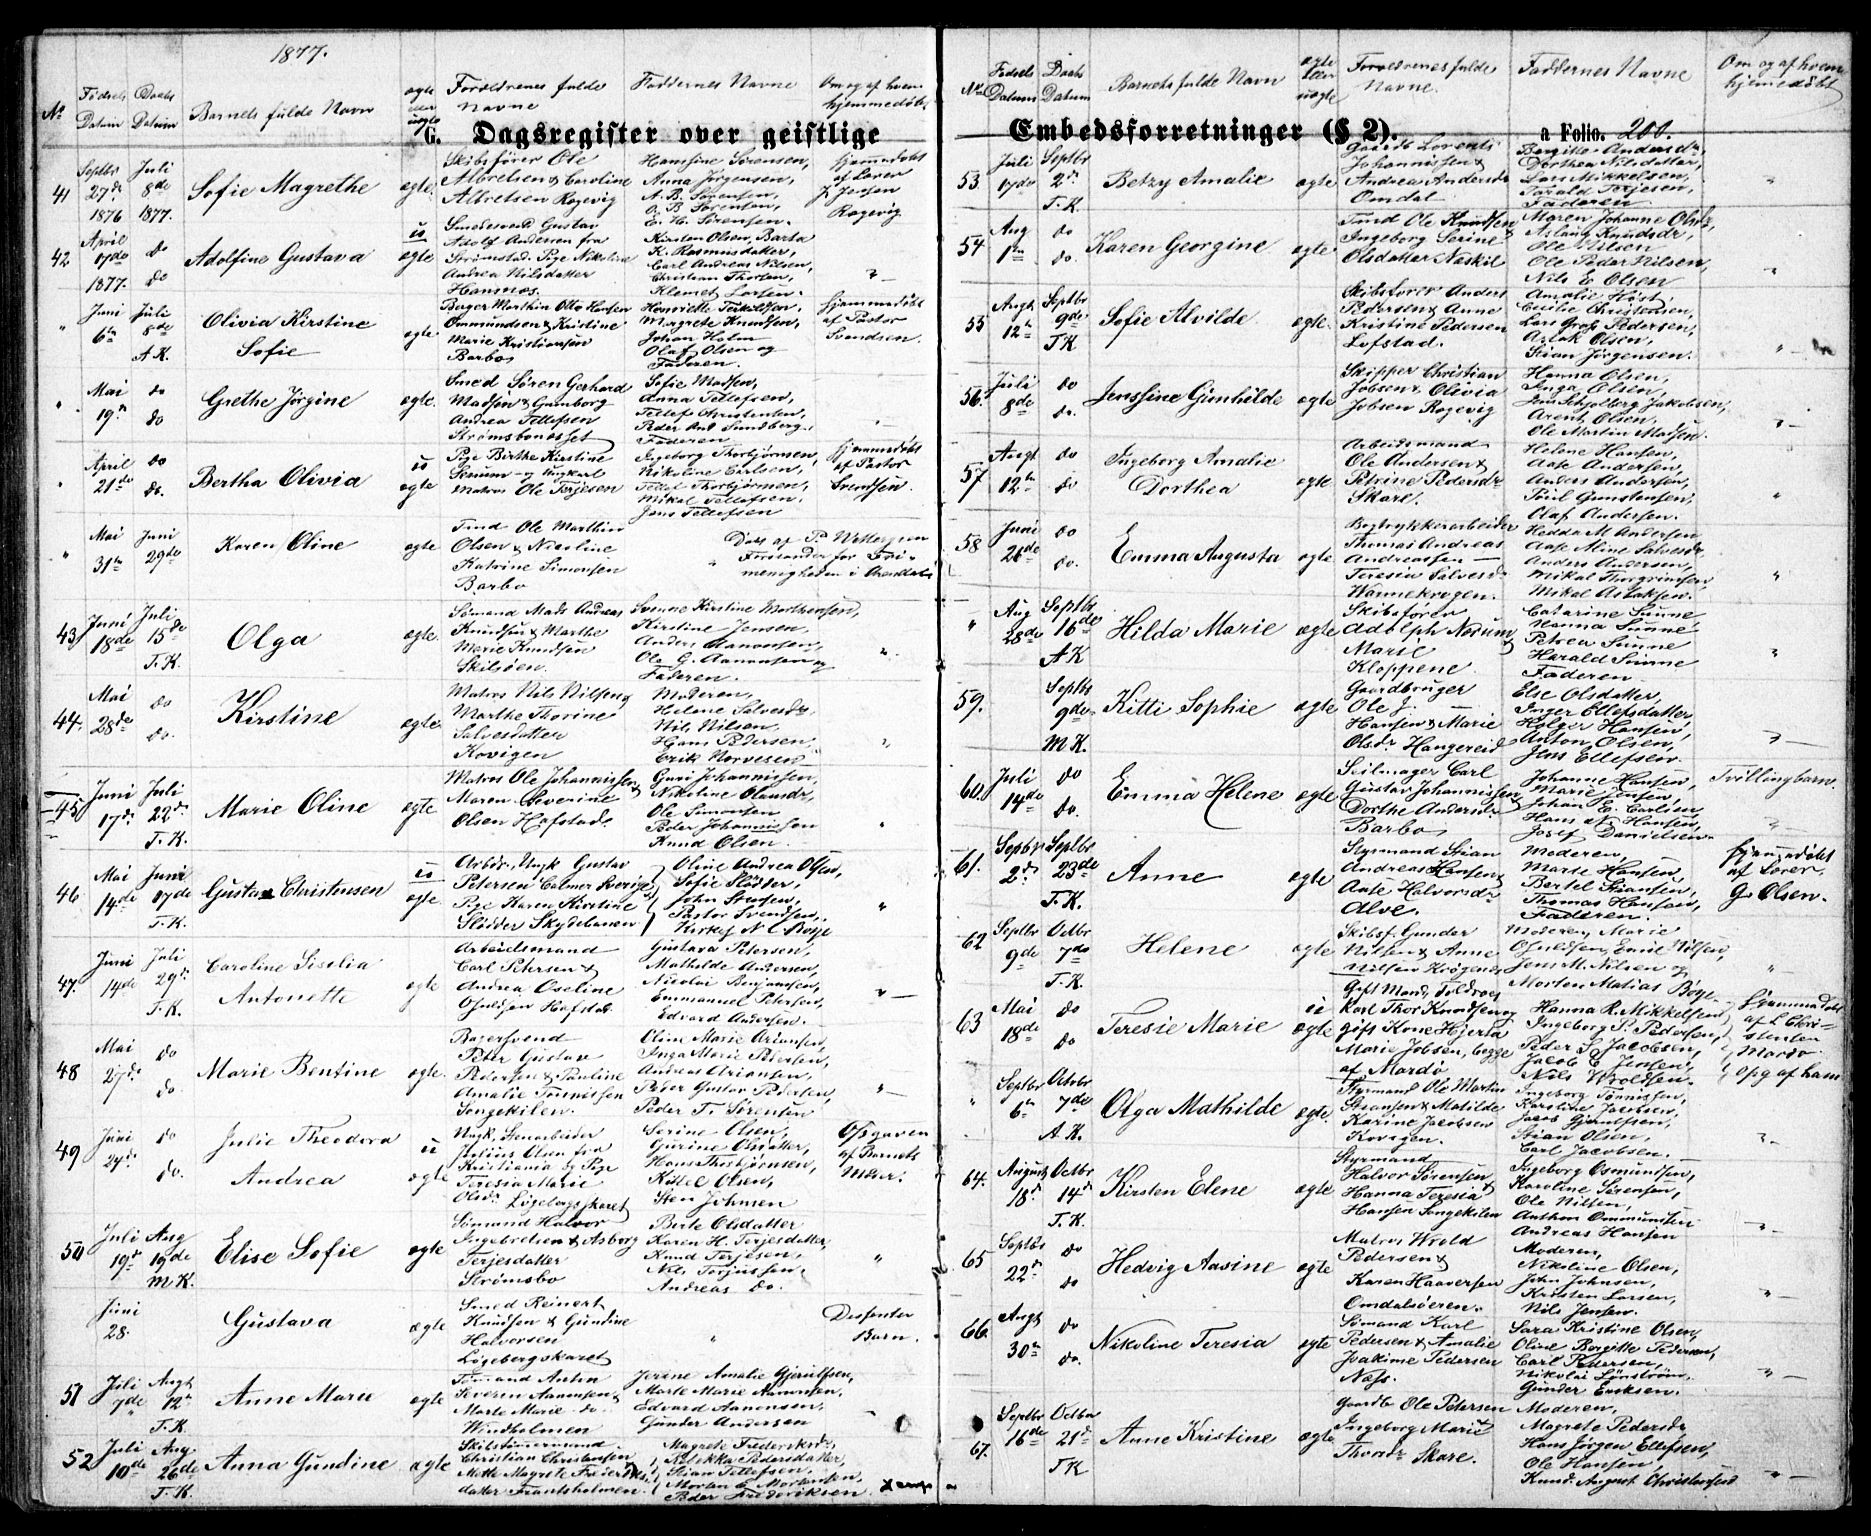 1877.
No
Fødsels Datum
Daabs Datum
Barnets fulde Navn
ægte eller uægte
Forældrenes fulde Navne
Faddernes Navne
Om og af hvem hjemmedøbt
G. Dagsregister over geistlige
41
Septbr 27de 1876
Juli 8de 1877.
Sofie Magrethe
ægte.
Skibsfører Ole
Albretsen & Caroline
Albretsen Ragevig
Hansine Sørensen,
Anna Jørgensen,
A. B. Sørensen,
O. B. Sørensen,
E. H. Sørensen.
hjemmedøbt
af Lærer
J. Jensen
Ragevig
42
April 17de 1877.
do
do
Adolfine Gustava
u
ægte
Smedesvend Gustav
Adolf Andersen fra
Strømstad. Pige Nikoline
Andrea Nilsdatter
Hansnæs.
Kirsten Olsen, Barta
K. Rasmusdatter,
Carl Andreas Nilsen,
Christian Thorsen,
Klemet Larsen.
"
Juni 6te
Juli 8de
A K.
Olivia Kirstine
Sofie
ægte
Berger Marthin Otto Hansen
Ommundsen & Kristine
Marie Kristiansen
Barbo
Henriette Terkildsen,
Margrete Knudsen,
Johan Holm
Olaf Olsen og
Faderen.
Hjemmedøbt
af Pastor
Svendsen.
"
Mai 19de
do
do
Grethe Jørgine
ægte.
Smed Søren Gerhard
Madsen & Gunborg
Andrea Tellefsen
Strømsbonesset
Sofie Madsen,
Anna Tellefsen,
Tellef Christensen,
Peder And Sundberg,
Faderen
"
April 21de
do
do.
Bertha Olivia
u
ægte
Pige Birthe Kirstine
og Ungkarl
Matros Ole Terjesen
Ingeborg Thorbjørnsen,
Nikoline Carlsen,
Tellef Thorbjørnsen,
Mikal Tellefsen.
Jens Tellefsen
hjemmedøbt
af Pastor
Svendsen.
"
Mai 31te
Juni 29de
Karen Oline
ægte
Tmd Ole Marthin
Olsen & Nicoline
Katrine Simonsen
Barbo
Døbt af
Forstander for Fri-
menigheden i Arendal
43
Juni 18de
Juli 15de
T. K.
Olga
ægte.
Sømand Mads Andreas
Knudsen & Marthe
Marie Knudsen
Skilsøen.
Svenne Kirstine Marthinsen,
Kirstine Jensen,
Anders Aanonsen,
Ole G. Aanonsen,
Faderen.
44.
Mai 28de
do
do.
Kirstine
ægte.
Matros Nils Nilsen &
Marthe Thorine
Salvesdatter
Kovigen
Moderen,
Helene Salvesdr,
Nils Nilsen,
Hans Pedersen,
Erik Norvesen
45
Juni 17de
Juli 22de
T. K.
Marie Oline
ægte
Matros Ole Johannissen &
Maren Severine
Olsen Hofstad.
Guri Johannissen,
Nikoline Olausdr,
Ole Simonsen
Peder Johannissen
Knud Olsen.
46
Mai 14de
Juni 17de
T. K.
Gustav Christensen
u
ægte
Arbdr. Ungk Gustav
Petersen Calmer Sverige,
Pige Karen Kirstine
Slødder Skydebanen
Oline Andrea Olsen,
Sofie Slødder,
John Steffen,
Pastor Svendsen,
Kirkes. N. C. Bøye
47.
Juni 14de
Juli 29de
T. K.
Caroline Siselia
Antonette
ægte
Arbeidsmand
Carl Petersen &
Andrea Oseline
Osuldsen Hofstad.
Gustava Petersen,
Mathilde Andersen,
Nicolai Benjamsen,
Emmanuel Petersen,
Edvard Andersen.
48
Mai 27de
do
do.
Marie Bentine
ægte.
Bagersvend
Peter Gustav
Pedersen & Pauline
Amalie Tønnissen
Songekilen.
Oline Marie Ariansen,
Inga Marie Petersen,
Andreas Ariansen,
Peder Gustav Pedersen,
Peder T. Sørensen
49
Juni 24de
do
do.
Julie Theodora
Andrea
u
ægte
Ungk. Stenarbeider
Julius Olsen fra
Kristiania og Pige
Teresia Marie
Olsdr. Løgebergskaret
Serine Olsen,
Gurine Olsdatter,
Hans Thorbjørnsen,
Kittel Olsen,
Sten Johnsen
Opgaven
af Barnets
Moer.
50
Juli 19de
Aug 19de
M K.
Elise Sofie
ægte
Sømand Halvor
Ingebretsen & Asborg
Terjesdatter
Strømsbo
Birte Olsdatter
Karen H. Terjesdatter,
Knud Terjesen,
Nils Terjussen,
Andreas do.
Juni 28.
Gustava
ægte
Smed Reinert
Knudsen & Gundine
Halvorsen
Løgebergskaret
Dissenter
Barn.
51
Juli 7de
Augt 12te
T. K
Anne Marie
ægte
Tømmand Anton
Severin Aanonsen &
Marte Marie do.
Windholmen
Jerine Amalie Gjerulfsen,
Marte Marie Aanonsen,
Edvard Aanonsen,
Gunder Andersen
52
Juli 10de
Aug. 26de
T. K.
Anna Gundine
ægte
Skibstømmermand
Christian Christensen
Mette Magrete Frederiks-
datter Frantsholmen.
Magrete Frederiksdr,
Rebekka Pedersdatter,
Stian Tellefsen,
Morten C Mortensen,
Peder Frederiksen.
No
Fødsels Datum
Daabs Datum
Barnets fulde Navn
ægte eller uægte
Forældrenes fulde Navne.
Faddernes Navne
Om og af hvem hjemmedøbt
Embedsforretninger (§ 2).
a Folio. 200.
53
Juli 17de
Septbr 2de
T. K.
Betzy Amalie
ægte
Gaardb Lorents
Johannissen &
Andrea Andersdr
Omdal
Bergitte Andersdr,
Dorthea Nilsdatter,
Lars Mikkelsen,
Tarald Terjesen,
Faderen
54
Aug 1ste
do
do.
Karen Georgine
ægte
Tmd Ole Knudsen &
Ingeborg Serine
Olsdatter Næskil
Maren Johanne Olsdr,
Aslaug Knudsdr,
Ole Nilsen
Ole Peder Nilsen,
Nils E Olsen
55
Augt 12te
Septbr 9de
T K
Sofie Alvilde
ægte.
Skibsfører Anders
Pedersen & Anne
Kristine Pedersen
Lofstad.
Amalie Høst,
Cecilie Christensen,
Lars Groß Pedersen,
Aslak Olsen,
Stian Jørgensen.
56.
Juli 8de
do
do.
Jenssine Gunhilde
ægte
Skipper Christian
Jobsen & Olivia
Jobsen Ragevig
Hanna Olsen,
Inga Olsen,
Jens Schjolberg Jakobsen,
Arent Olsen,
Ole Martin Madsen.
57
Augt 12te
do
do
Ingeborg Amalie
Dorthea
ægte
Arbeidsmand
Ole Andersen &
Petrine Pedersdr
Skare.
Helene Hansen,
Aase Andersen,
Anders Andersen,
Poul Gunstensen,
Olaf Andersen.
58
Juni 26de
do
do.
Emma Augusta
ægte
Bogtrykkerarbeider
Thomas Andreas
Andreassen
Teresia Salvesdr
Wannekrogen.
Hedda M Andersen,
Aase Aline Salvesdr,
Anders Andersen,
Mikal Thorgrimsen,
Mikal Aslaksen.
"
Aug 28de
Septbr 16de
A K
Hilda Marie
ægte
Skibsfører
Adolph Næsum &
Marie
Kloppene
Catarine Sunne
Hanna Sunne,
Petrea Sunne
Harald Sunne
Faderen
59.
Septbr 9de
M K.
Kitti Sophie
ægte
Gaardbruger
Ole J.
Hansen & Marie
Olsdr Hangereid
Else Olsdatter,
Inger Ellefsdatter,
Holger Hansen,
Anton Olsen,
Jens Ellefsen.
60.
Juli 14de
do
do.
Emma Helene
ægte
Seilmager Carl
Gustav Johannissen &
Dorthe Andersdr
Barbo
Johanne Hansen,
Marie Jensen,
Johan E. Carlsen,
Hans N. Hansen,
Josef Danielsen.
Tvillingbarn
61.
Septbr 2de
Septbr 23de
T. K.
Anne
ægte
Styrmand Stian
Andreas Hansen &
Aase Halvorsdr
Alve.
Moderen,
Marte Hansen,
Bertel Stiansen,
Thomas Hansen,
Faderen.
hjemmedøbt
af Lærer
G. Olsen.
62
Septbr 9de
Octbr 7de
T. K.
Helene
ægte
Skibsf. Gunder
Nilsen & Anne
Nilsen Krøgenes
Moderen, Marie
Osuldsen, Emil Nilsen,
Jens M. Nilsen og
Morten Matias Bøge
63
Mai 18de
do
do
Teresie Marie
u
ægte
Gift Mand, Toldroer
Karl Thor Knudsen og
gift Kone Hjerta
Marie Jobsen, begge
af Mardø
Hanna R. Mikkelsen
Ingeborg P. Pedersen,
Peder S. Jacobsen,
Jacob E Jensen,
Nils Wroldsen.
Hjemmedøbt
af L Chri-
stensen
Mardø
Opg af ham
"
Septbr 6te
Octobr 7de
A. K.
Olga Mathilde
ægte.
Styrmand Ole Martin
Stiansen & Matilde
Karine Jacobsen
Kovigen.
Ingeborg Tønnissen,
Karoline Jacobsen,
Jacob Gjerulfsen,
Stian Olsen,
Carl Jacobsen.
64.
August 18de
Octbr 14de
T. K.
Kirsten Elene
ægte
Styrmand
Halvor Sørensen &
Hanna Teresia
Hansen Songekilen
Ingeborg Osmundsen,
Karoline Sørensen,
Ole Nilsen,
Anthon Ommundsen
Andreas Hansen
65
Septbr 22de
do
do
Hedvig Aasine
ægte
Matros Wrold
Pedersen &
Karen Haaversen
Omdalsøeren.
Moderen,
Nikoline Olsen,
John Johnsen,
Kristen Larsen,
Nils Jensen.
66.
Augt 30te
do
do.
Nikoline Teresia
ægte
Sømand Karl
Pedersen & Amalie
Joakime Pedersen
Næss.
Sara Kristine Olsen,
Oline Bergitte Pedersen,
Carl Pedersen,
Nikolai Lønstrøm,
Gunder Eriksen.
67.
Septbr 16de
Octbr 21de
T K
Anne Kristine
ægte
Gaardb Ole Petersen
Ingeborg Marie
Thordr Skare.
Moderen,
Magrete Pedersdr
Hans Jørgen Ellefsen,
Ole Hansen,
Knud August Christensen